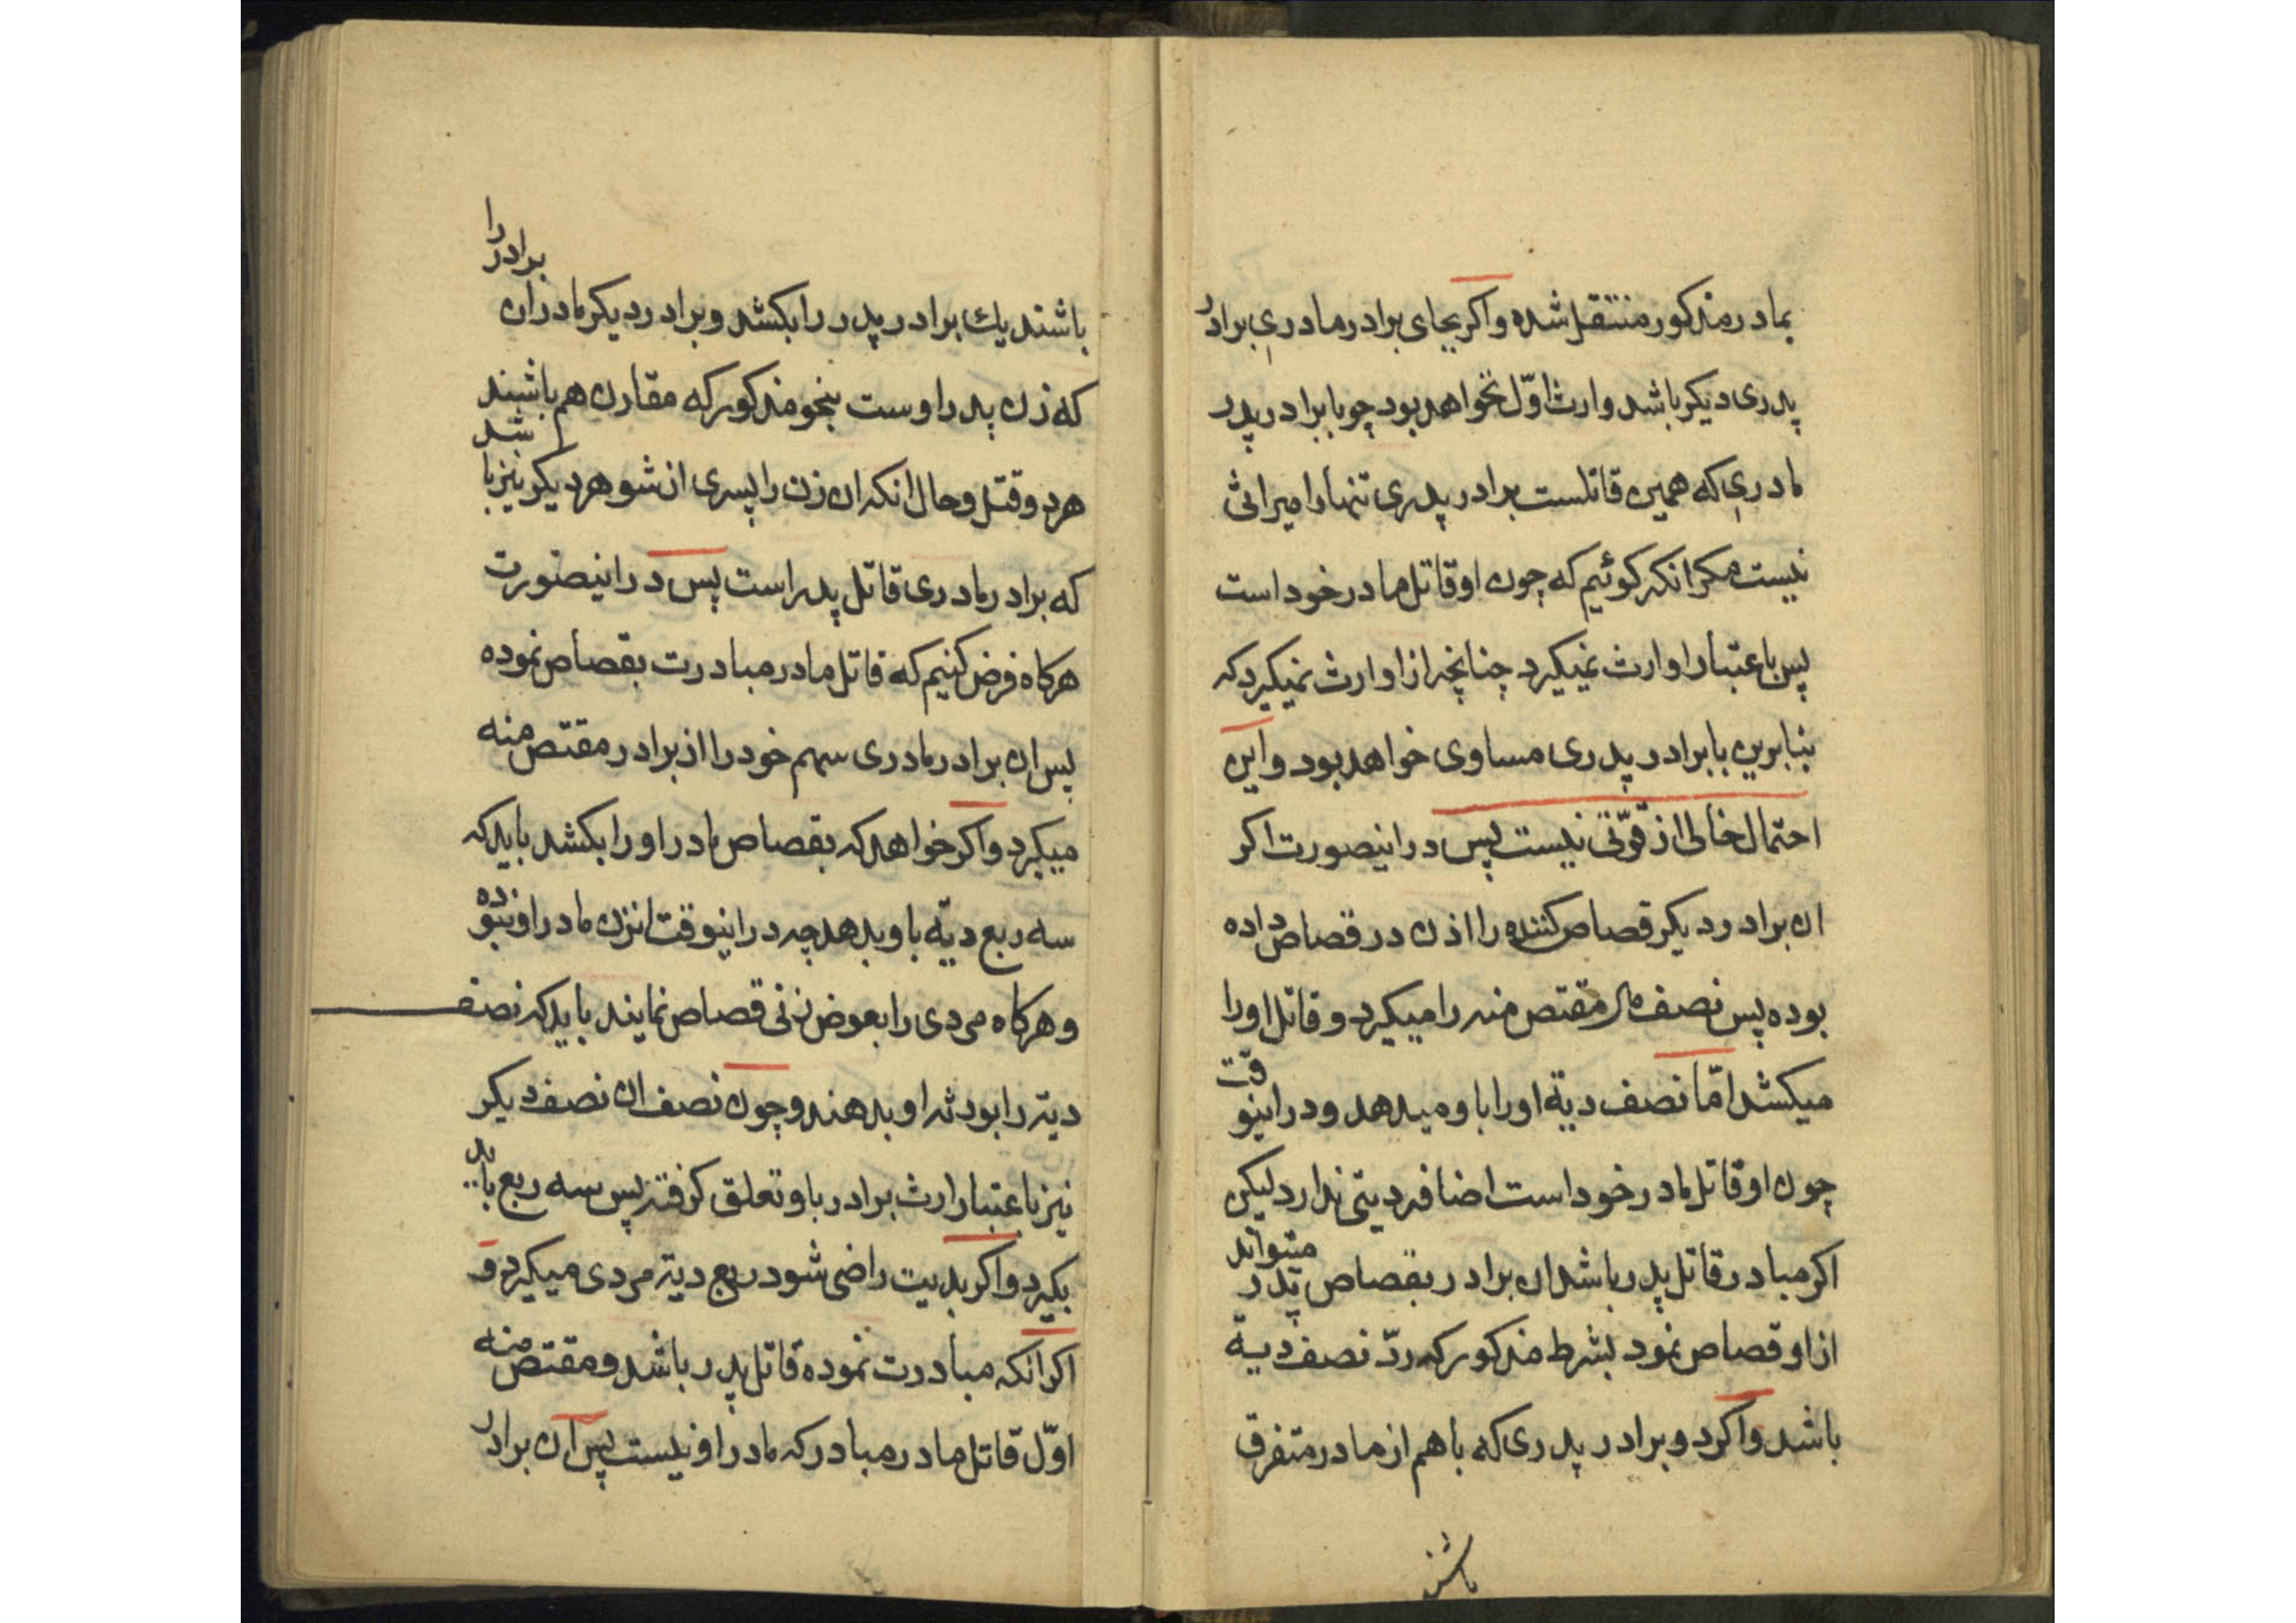 بمادر مذکور منتقل شده واکر بجای برادر مادری برادر
پدری دیکر باشد وارث اوّل نخواهد بود چو با برادر پدر
مادری که همین قاتلست برادر پدری تنها را میراثی
نیست مکر انکه کوئیم که چون او قاتل مادر خود است
پس باعتبار او ارث نمیکیرد چنانچه از او ارث نمیکیرد که
بنابرین با برادر پدری مساوی خواهد بود و این
احتمال خالی از قوّتی نیست پس در اینصورت اکر
ان برادر دیکر قصاص کننده را اذن در قصاص داده
بوده پس نصف مال مقتص منه را میکیرد و قاتل او را
میکشد امّا نصف دیة او را باو میدهد و در اینوقت
چون او قاتل مادر خود است اضافه دیتی ندارد لیکن
اکر مبادر قاتل پدر باشد ان برادر بقصاص پدر میتواند
از او قصاص نمود بشرط مذکور که ردّ نصف دیة
باشد واکر دو برادر پدری که با هم از مادر متفرق
باشند
باشند یك برادر پدر را بکشد و برادر دیکر مادر ان برادر را
که زن پدر اوست بنحو مذکور که مقارن هم باشند
هر دو قتل و حال انکه ان زن را پسری از شوهر دیکر نیز باشد
که برادر مادری قاتل پدر است پس در اینصورت
هرکاه فرض کنیم که قاتل مادر مبادرت بقصاص نموده
پس ان برادر مادری سهم خود را از برادر مقتص منه
میکیرد واکر خواهد که بقصاص مادر او را بکشد باید که
سه ربع دیّه باو بدهد چه در اینوقت انزن مادر او نبوده
و هرکاه مردی را بعوض زنی قصاص نمایند باید که نصف
دیته را بورثه او بدهند و چون نصف ان نصف دیکر
نیز باعتبار ارث برادر باو تعلق کرفته پس سه ربع باید
بکیرد واکر بدیت راضی شود ربع دیته مردی میکیرد و
اکر انکه مبادرت نموده قاتل پدر باشد و مقتص منه
اوّل قاتل مادر مبادر که مادر او نیست پس ان برادر